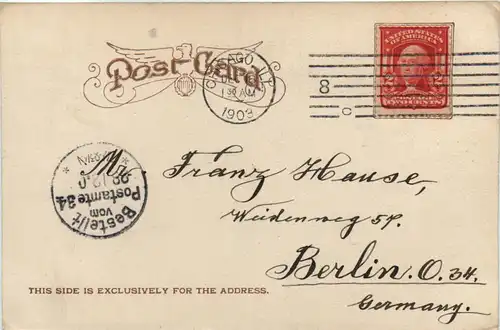 Post Card
CHICAGO, ILL.
1 30 AM
1903
8
C
UNITED STATES
OF AMERICA
2 2
POSTAGE
TWO CENTS
Mr. Franz Hause,
Weidenweg 57.
Berlin. O. 34.
Germany.
Bestellt
vom
Postamte 34
THIS SIDE IS EXCLUSIVELY FOR THE ADDRESS.